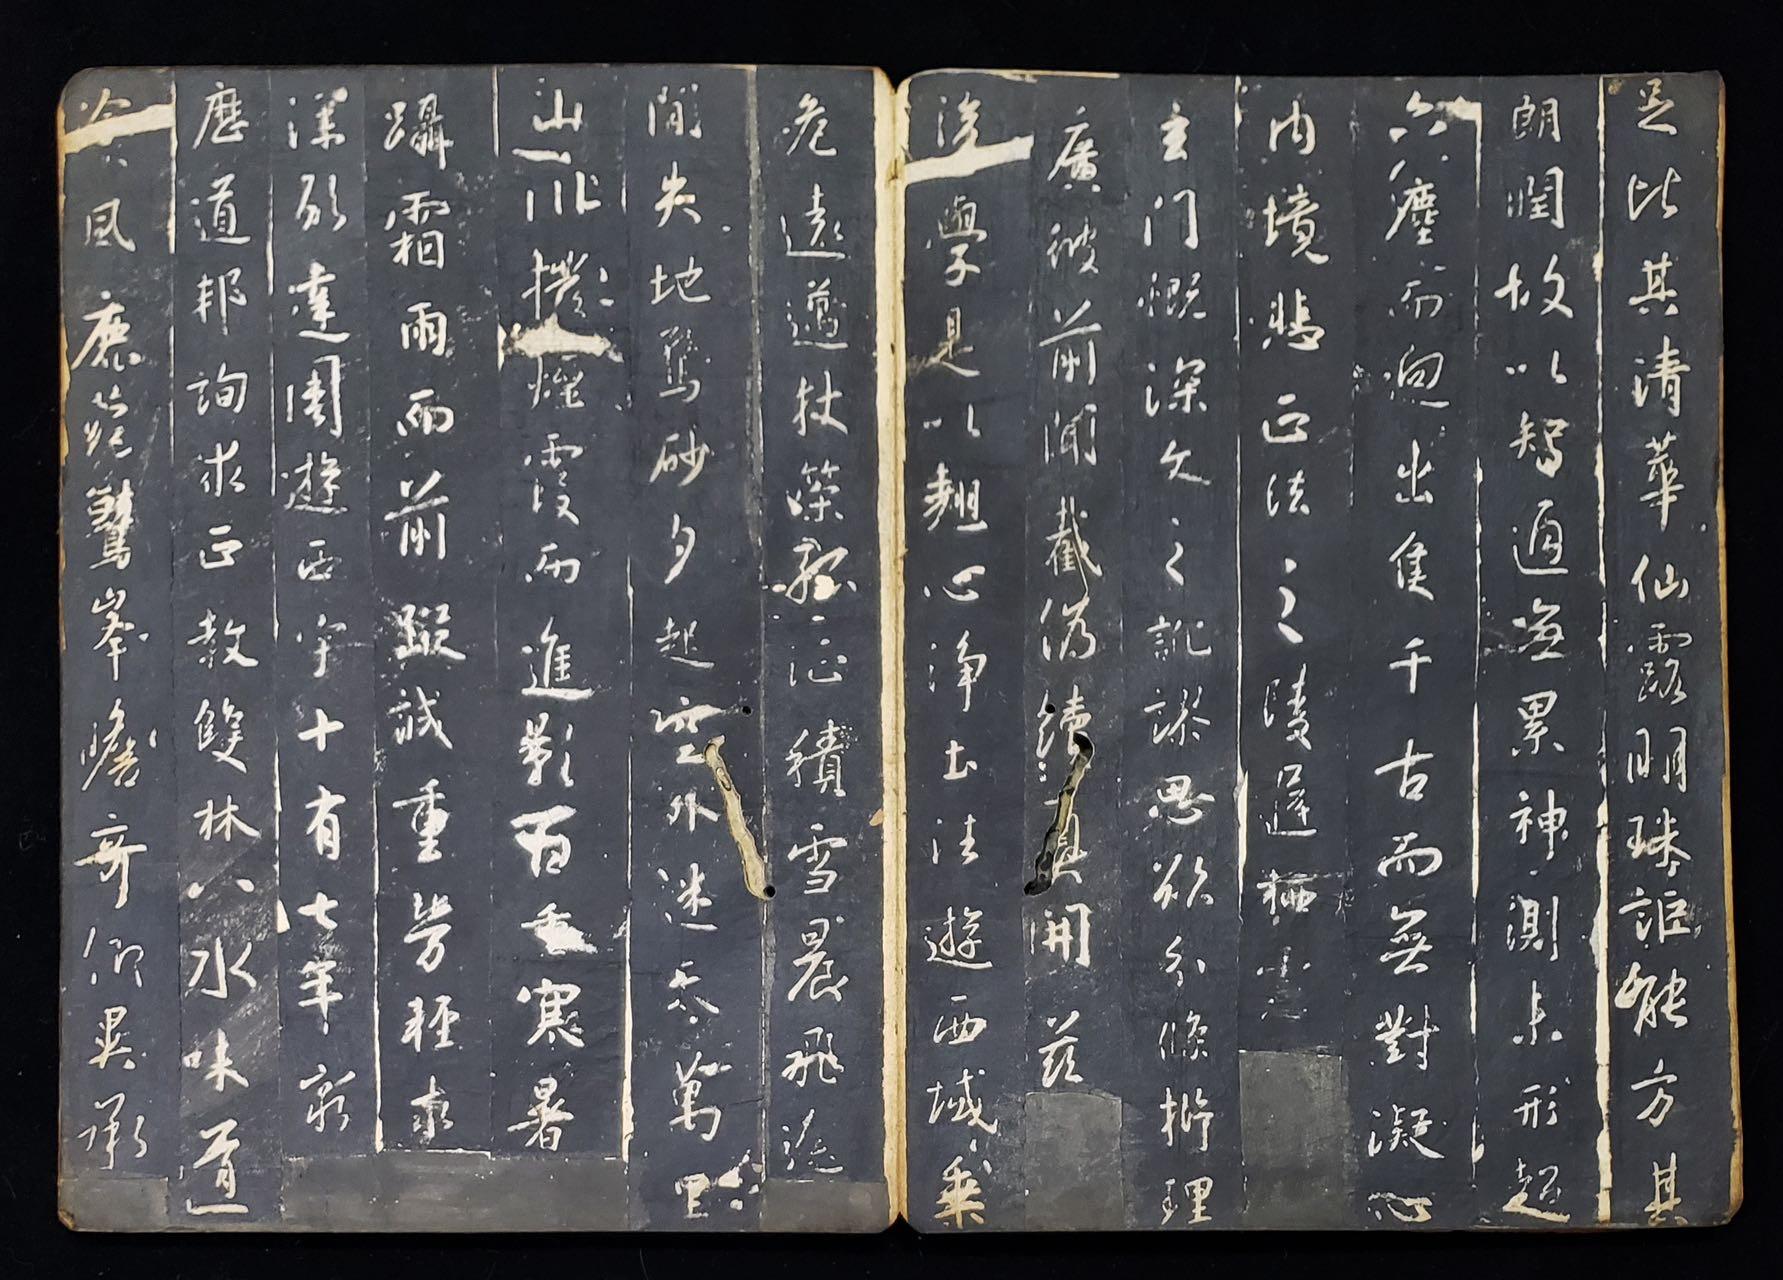 足比其清華仙露明珠詎能方其
朗潤故以智通無累神測未形超
六塵而迥出隻千古而無對凝心
內境悲正法之陵遲栖慮
玄門慨深文之訛謬思欲分條析理
廣彼前聞截偽續真開茲
後學是以翹心淨土法遊西域乘
危遠邁杖策孤征積雪晨飛途
間失地驚砂夕起空外迷天萬里
山川撥煙霞而進影百重寒暑
躡霜雨而前蹤誠重勞輕求
深願達周遊西宇十有七年窮
歷道邦詢求正教雙林八水味道
飡風鹿菀鷲峯瞻奇仰異承